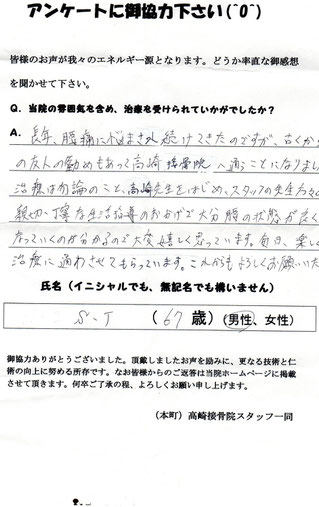 アンケートに御協力下さい(^0^)
皆様のお声が我々のエネルギー源となります。どうか率直な御感想
を聞かせて下さい。
Q. 当院の雰囲気を含め、治療を受けられていかがでしたか?
A. 長年、腰痛に悩まされ続けてきたのですが、古くから
の友人の勧めもあって高崎接骨院へ通うことになりまし
治療は勿論のこと、高崎先生をはじめ、スタッフの先生方の
親切、丁寧な生活指導のおかげで大分腰の状態が良く
なっていくのが分かるので大変嬉しく思っています。毎日、楽し
治療に通わさせてもらっています。これからもよろしくお願いいた
氏名(イニシャルでも、無記名でも構いません)
S・T (67歳)(男性、女性)
御協力ありがとうございました。頂戴しましたお声を励みに、更なる技術と仁
術の向上に努める所存です。なお皆様からのご返答は当院ホームページに掲載
させて頂きます。何卒ご了承の程、よろしくお願い申し上げます。
(本町)高崎接骨院スタッフ一同